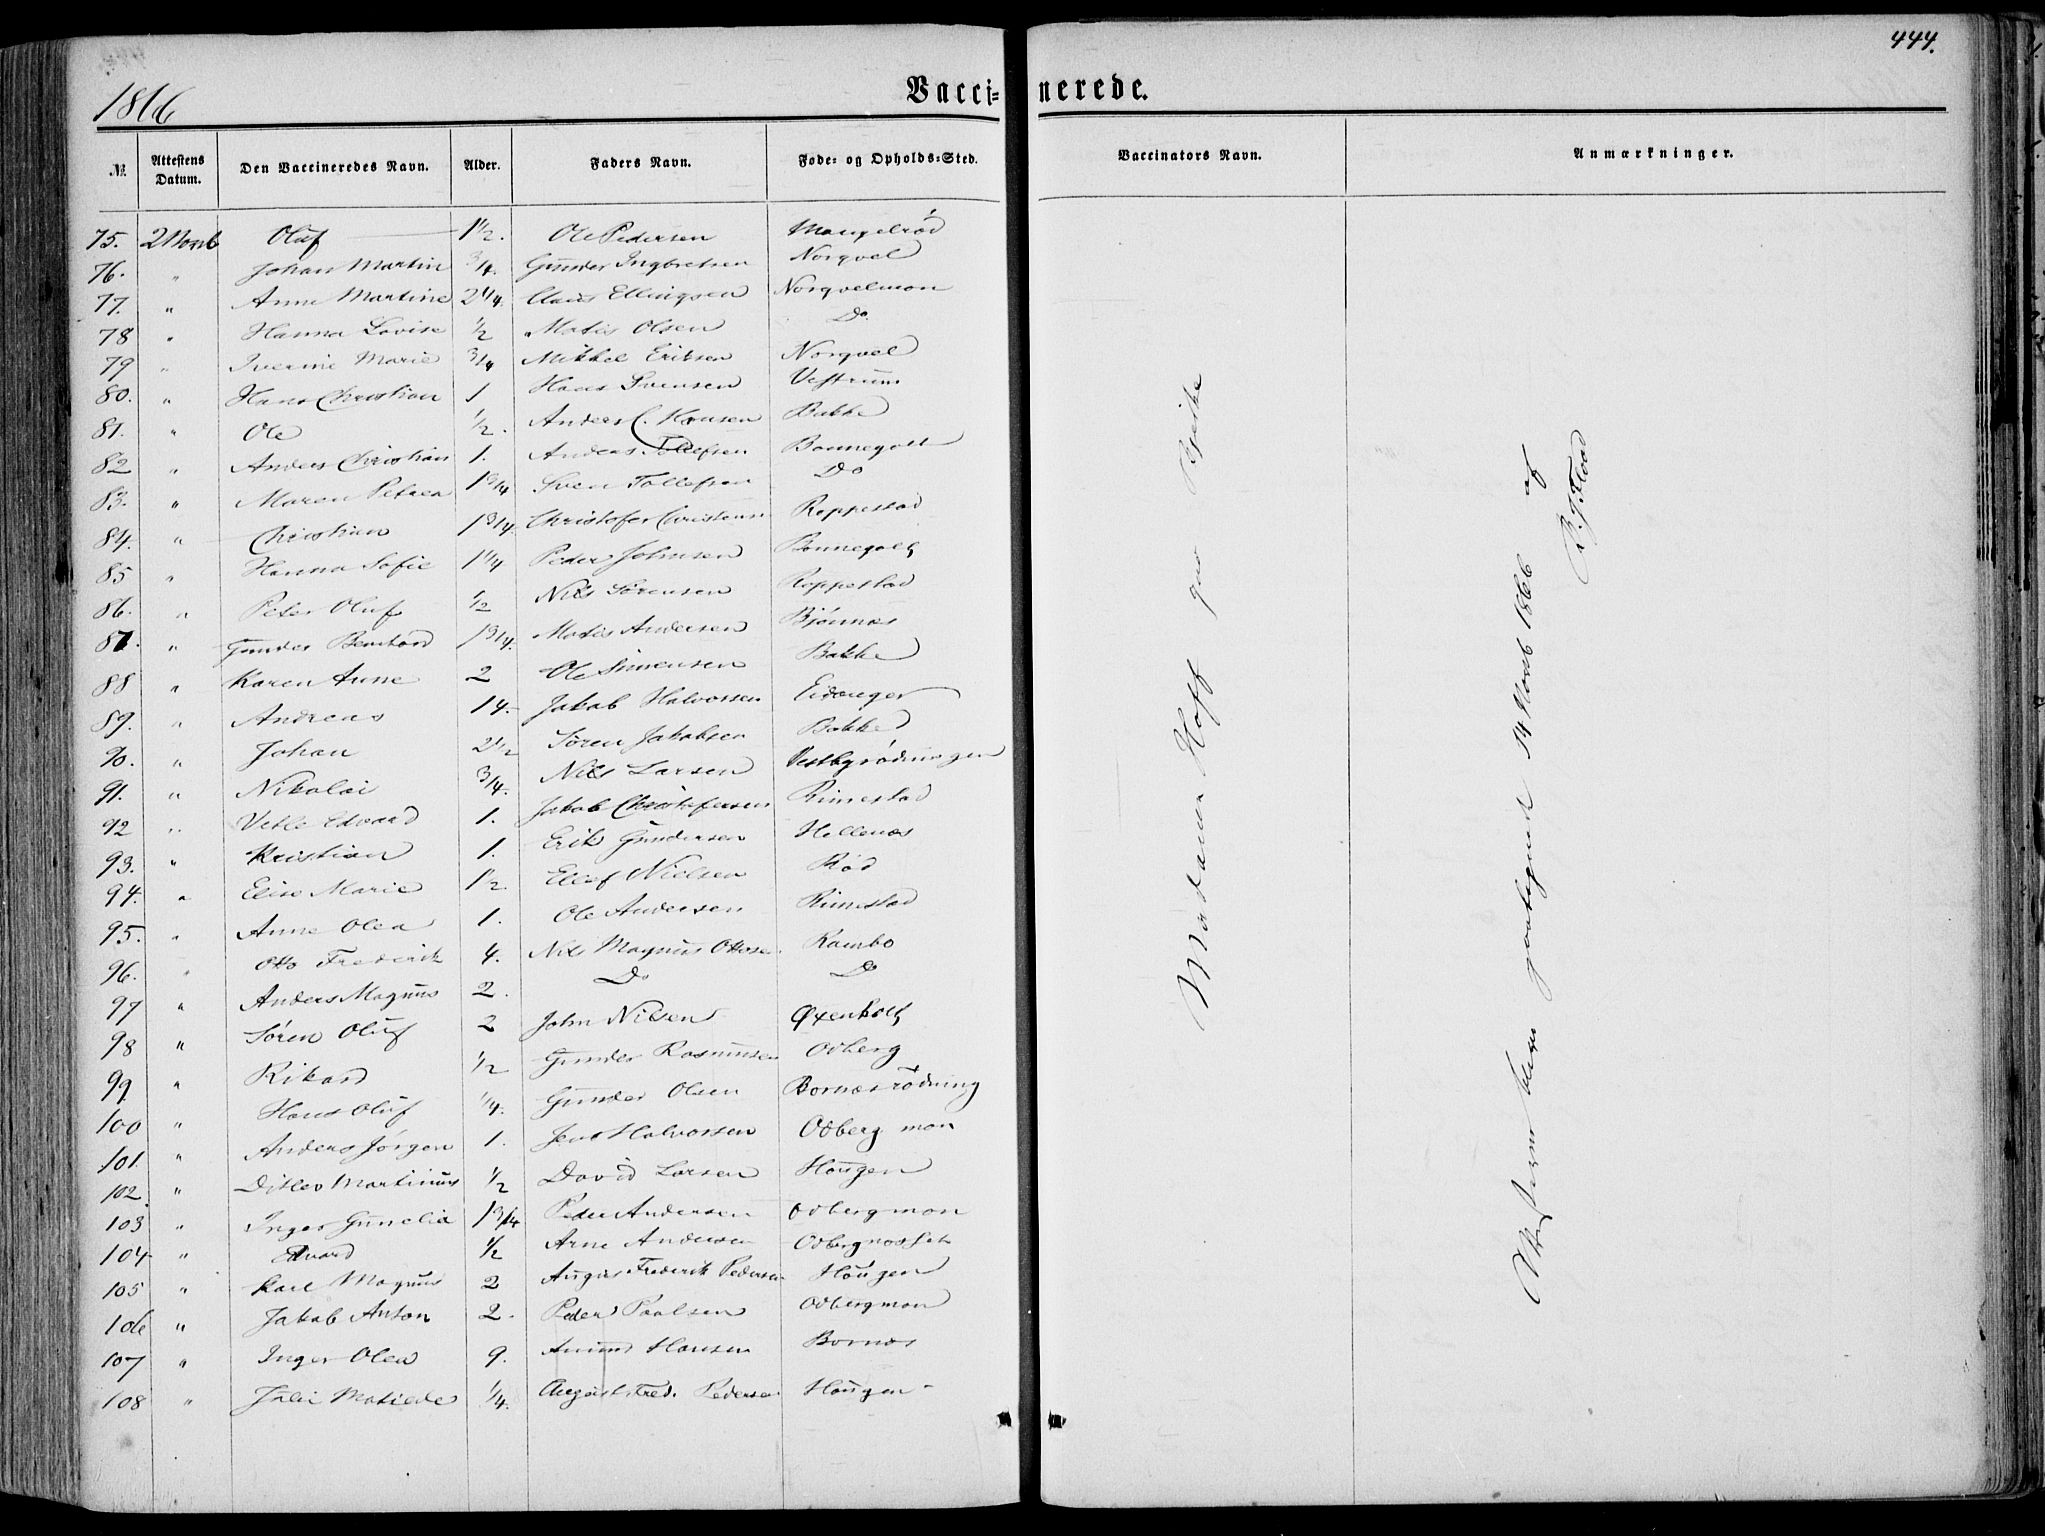 444.
1866
Vacci= nerede.
№ Attestens Datum. Den Vaccineredes Navn. Alder. Faders Navn. Føde= og Opholds=Sted. Vaccinators Navn. Anmærkninger.
75. 2 Novb Oluf 1½. Ole Pedersen Mangelrød
76. " Johan Martin 3/4. Gunder Ingbretsen Norqvel
77. " Anne Martine 2 1/4. Claus Ellingsen Norqvelmon
78 " Hanna Lovise ½ Matis Olsen Do
79 " Iverine Marie 3/4 Mikkel Eriksen Norqvel
80. " Hans Christian 1 Hans Svensen Vestrum
81. " Ole ½. Anders C. Hansen Bakke
82 " Anders Christian 1. Andeas Tollefsen Bonnegolt
83. " Maren Petrea 1 3/4 Sven Tollefsen Do
84. " Christian 1 3/4. Christofer Christensen Roppestad
85 " Hanna Sofie 1 1/4 Peder Johnsen Bonnegolt
86. " Peter Oluf ½ Nils Sørensen Roppestad
87. " Gunder Bernhard 1 3/4. Matis Andersen Bjønnes
88 " Karen Anne 2 Ole Simensen Bakke
89. " Andreas 14. Jakob Halvorsen Eidanger
90. " Johan 2½ Søren Jakobsen Bakke
91. " Nikolai 3/4. Nils Larsen Vestbyrødningen
92 " Vetle Edvard 1. Jakob Christofersen Rimestad
93. " Kristian 1. Erik Gundersen Hellenæs
94. " Elise Marie 1½. Elief Nielsen Rød
95. " Anne Olea 1. Ole Andersen Rimestad
96. " Otto Frederik 4. Nils Magnus Ottosen Rambo
97 " Anders Magnus 2. Do Do
98 " Søren Oluf 2 John Nilsen Øxenholt
99 " Rikard ½ Gunder Rasmusen Odberg
100 " Hans Oluf 1/4. Gunder Olsen Bornæsrødning
101. " Anders Jørgen 1. Jens Halvorsen Odberg mon
102. " Ditlev Martinius ½ David Larsen Haugen
103 " Inger Gunelia 1 3/4 Peder Andersen Odbergmon
104 " Edvard ½ Arne Andersen
105 " Karl Magnus 2 Frederik Pedersen Haugen
106 " Jakob Anton 2. Peder Paalsen Odbergmon
107 " Inger Olea 9. Amund Hansen Bornæs
108 " Julie Matilde 1/4. August Fred. Pedersen Haugen
Madame Hoff
14 Novb 1866 af